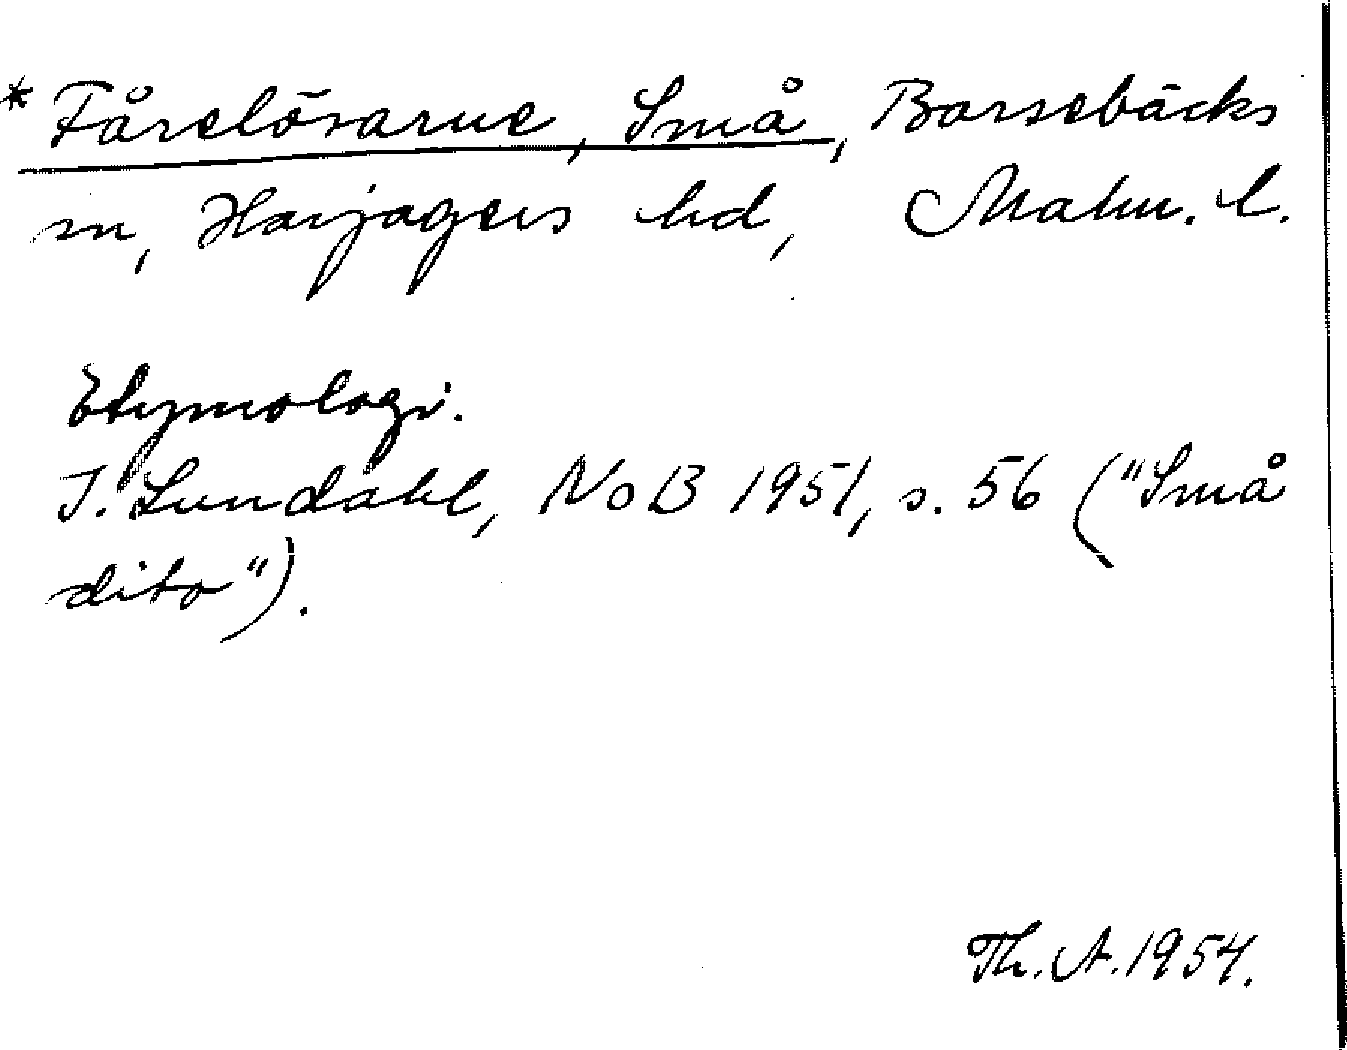 * Fårelösarne, Små, Barsebäcks
sn, Harjagers hd, Malm. l.
Etymologi.
I. Lundahl, NoB 1951, s. 56 ("Små
dito").
Th. A. 1954.